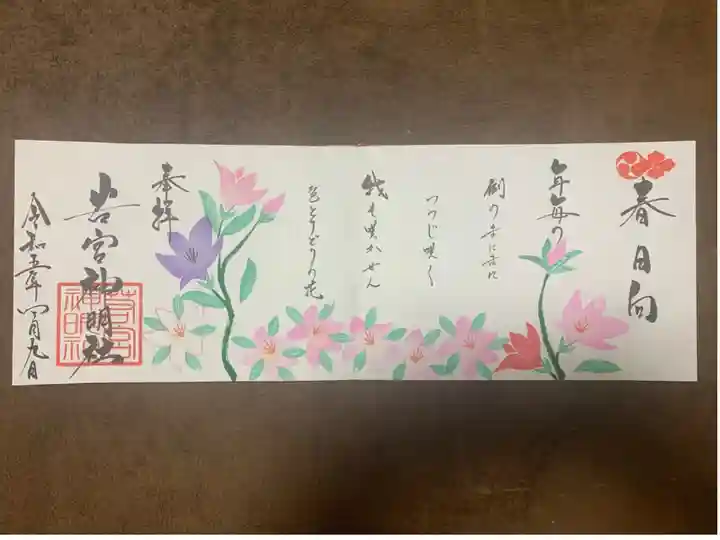 春日向
毎毎の
つつじ咲く
我も咲かせん
色とりどりの花
奉拝
若宮神明社
令和五年四月九日
若宮神明社